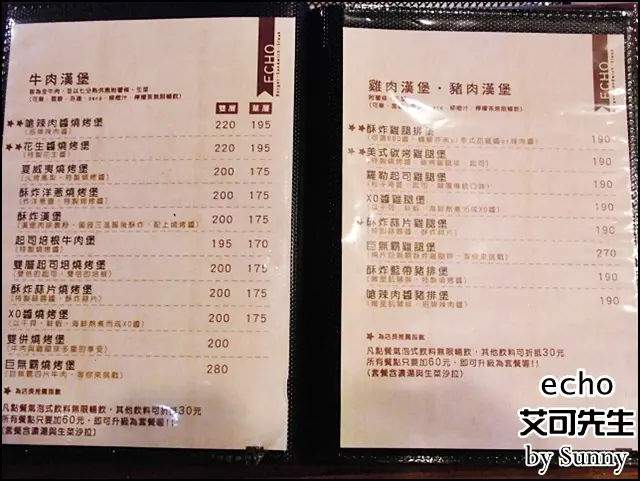 ECHO
牛肉漢堡
雙層 單層
★★嗆辣肉醬燒烤堡 220 195
(招牌辣肉醬)
★★花生醬燒烤堡 220 195
(特製花生醬)
夏威夷燒烤堡 200 175
酥炸洋蔥燒烤堡 200 175
酥炸漢堡 200 175
起司培根牛肉堡 195 170
(特製燒烤醬)
雙層起司培燒烤堡 200 175
(雙倍的起司,雙倍的培根)
酥炸蒜片燒烤堡 200 175
XO醬燒烤堡 200 175
雙併燒烤堡 200
巨無霸燒烤堡 280
★ 為店長推薦指數
凡點餐氣泡式飲料無限暢飲,其他飲料可折抵30元
所有餐點只要加60元,即可升級為套餐喔!!
(套餐含濃湯與生菜沙拉)
ECHO
雞肉漢堡・豬肉漢堡
★★酥炸雞腿排堡 190
★美式碳烤雞腿堡 190
羅勒起司雞腿堡 190
XO醬雞腿堡 190
★酥炸蒜片雞腿堡 190
巨無霸雞腿堡 270
酥炸藍帶豬排堡 190
嗆辣肉醬豬排堡 190
★ 為店長推薦指數
凡點餐氣泡式飲料無限暢飲,其他飲料可折抵30元
所有餐點只要加60元,即可升級為套餐喔!!
(套餐含濃湯與生菜沙拉)
echo
艾可先生
by Sunny